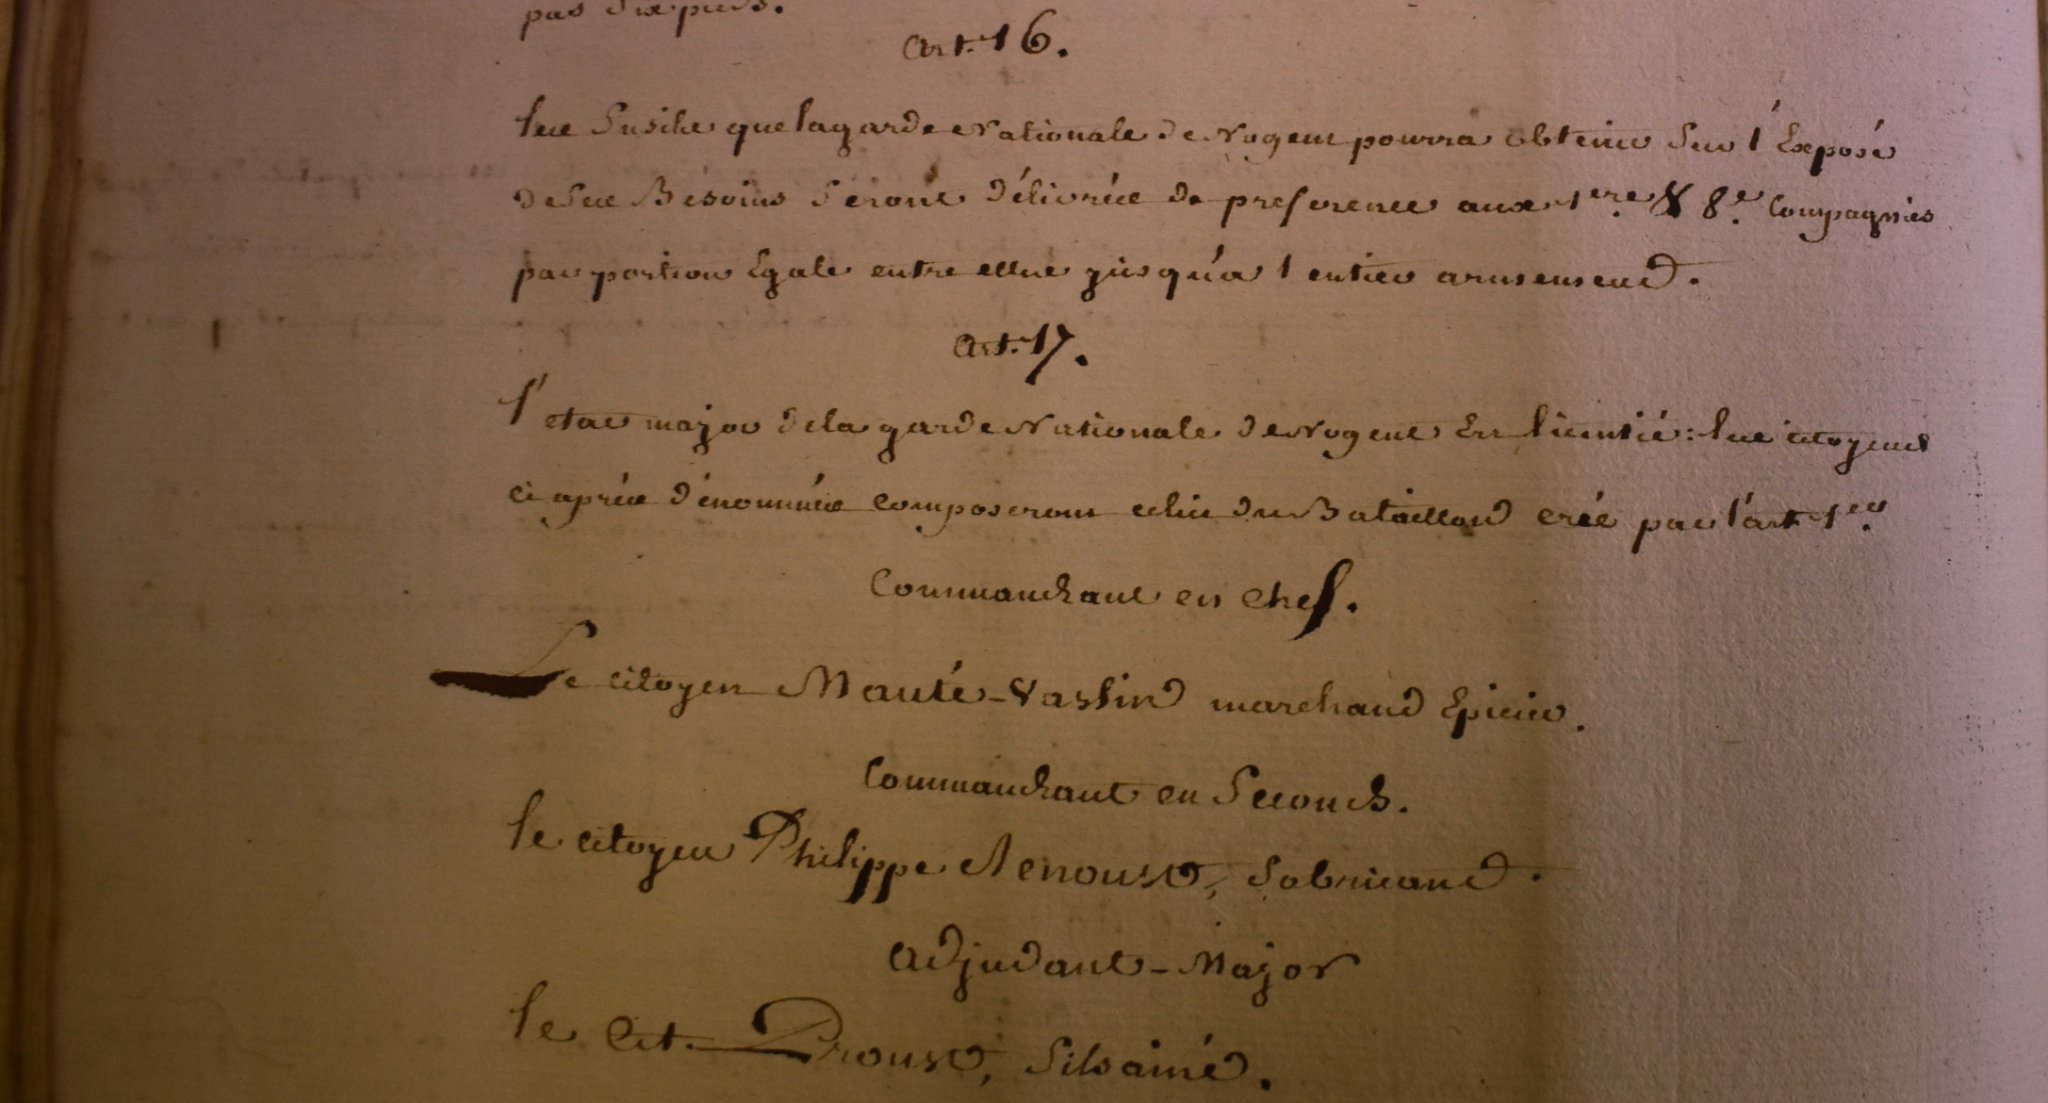 pas six pieds.
Art. 16.
les fusils que la garde Nationale de Nogent pourra obtenir sur l'Exposé
de ses Bésoins séront délivrés de preference aux 1ere & 8e. Compagnies
par portion Egale entre elles jusqu'a l entier armement.
Art. 17.
l'etat major de la garde Nationale de Nogent Est licentié: les citoyens
ci après dénommés composeront celui du Bataillon créé par l'art 1er.
Commandant en chef.
Le citoyen Mauté-Vassin marchand Epicier.
Commandant en Second.
le citoyen Philippe Renoust, fabricant.
Adjudant-Major
le Cit. Proust, fils ainé.